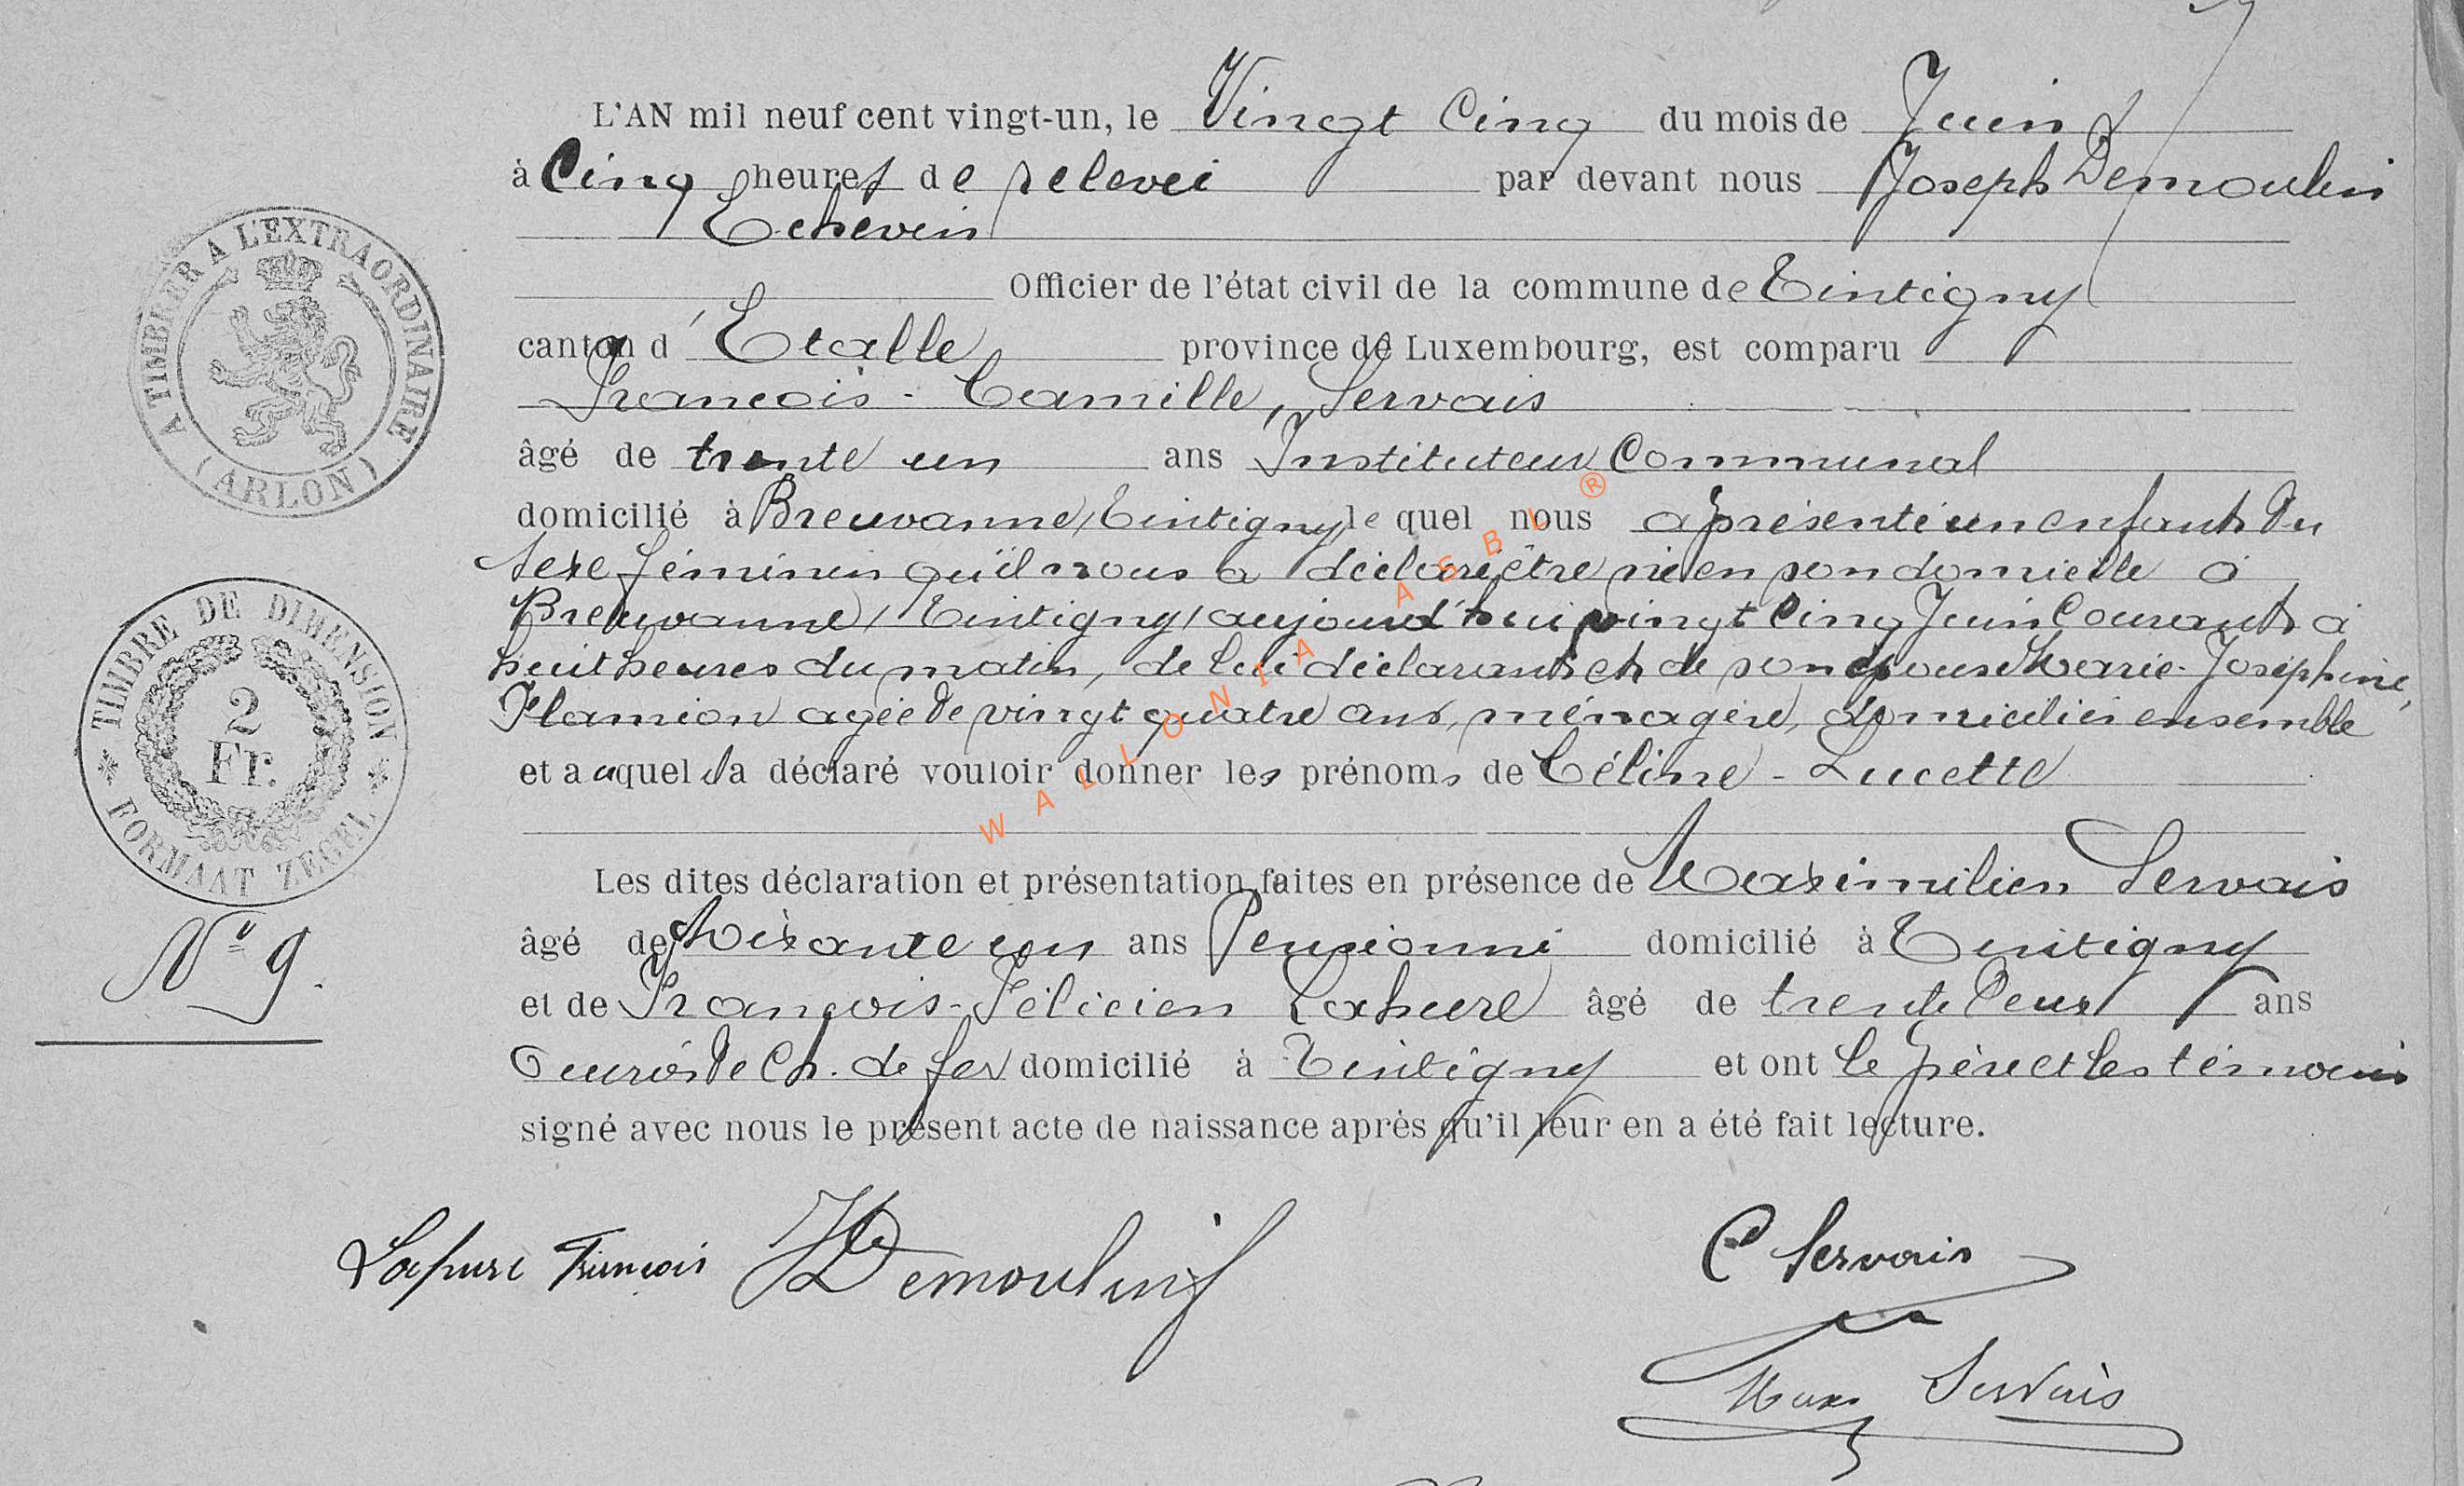 L'AN mil neuf cent vingt-un, le Vingt Cinq du mois de Juin
à Cinq heures de relevée par devant nous Joseph Demoulin
Echevin
Officier de l'état civil de la commune de Tintigny
canton d'Etalle province de Luxembourg, est comparu
François-Camille, Servais
âgé de trente un ans Instituteur Communal
domicilié à Breuvanne, Tintigny, le quel nous a présenté un enfant du
sexe féminin qu'il nous a déclaré être né en son domicile à
Breuvanne, Tintigny, aujourd'hui vingt Cinq Juin Courant à
huit heures du matin, de lui déclarant et de son épouse Marie-Joséphine,
Flamion agée de vingt quatre ans, ménagère, domiciliés ensemble
et auquel il a déclaré vouloir donner les prénoms de Céline-Lucette
Les dites déclaration et présentation faites en présence de Maximilien Servais
âgé de soixante un ans Pensionné domicilié à Tintigny
et de François-Félicien Lahure âgé de trente Deux ans
Ouvrier de Ch. de fer domicilié à Tintigny et ont le père et les témoins
signé avec nous le présent acte de naissance après qu'il leur en a été fait lecture.
Lahure François Demoulin J C Servais
Max Servais
A TIMBRER A L'EXTRAORDINAIRE
(ARLON)
TIMBRE DE DIMENSION
2
Fr.
FORMAAT ZEGEL
N° 9.
WALLONIA ASBL ®